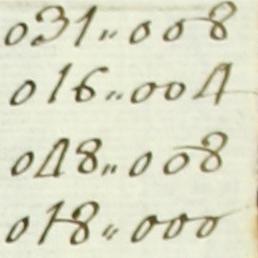 031,,008
016,,004
048,,008
018,,000